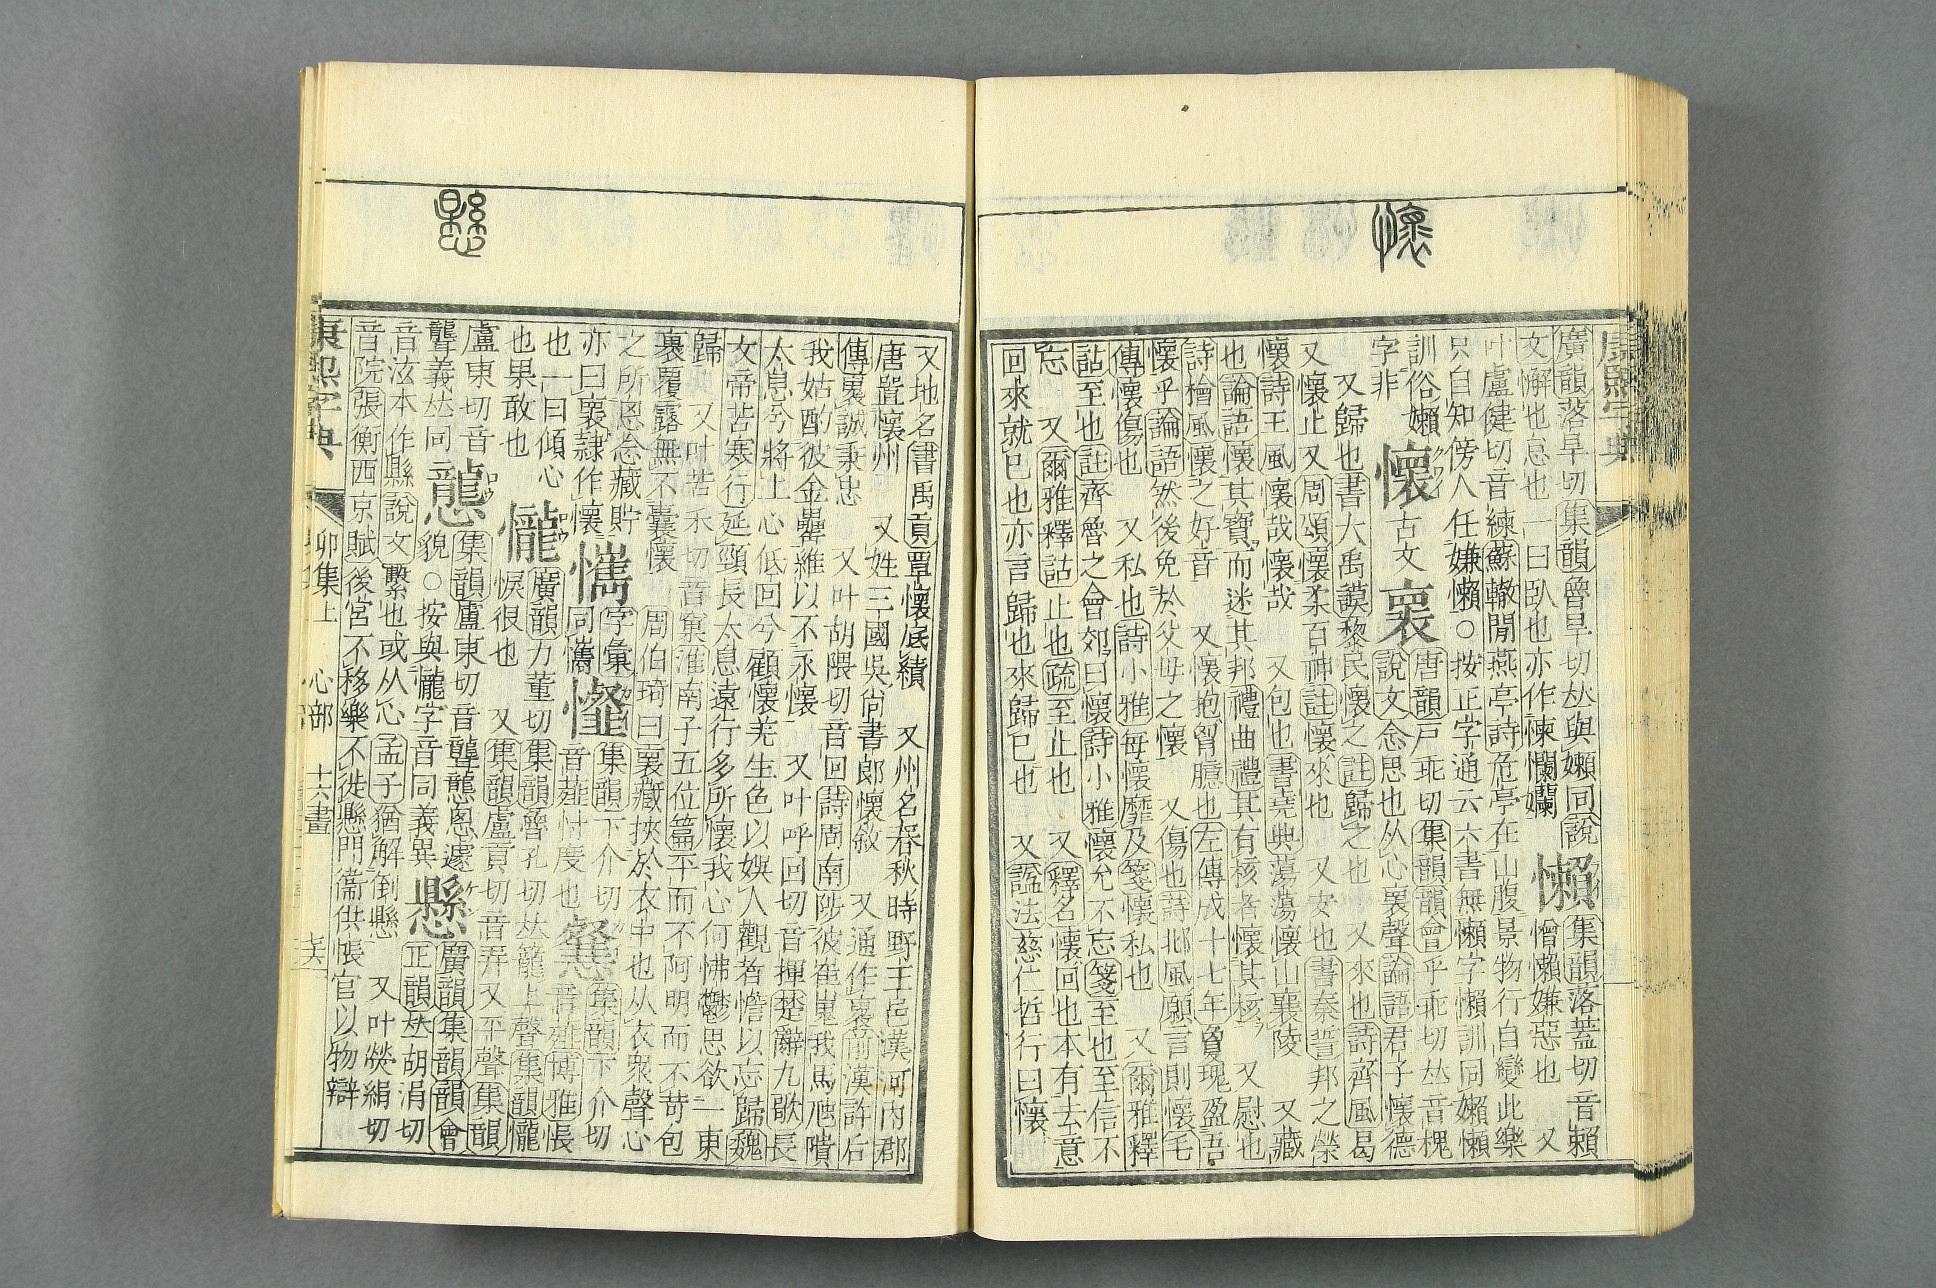 懷
廣韻落旱切集韻魯旱切𠀤與嬾同說
文懈也怠也一曰臥也亦作㦨爛孏 懶 集韻落蓋切音賴
憎懶嫌惡也 又
叶盧健切音練蘇轍閒燕亭詩危亭在山腹景物行自變此樂
只自知傍人任嫌懶○按正字通云六書無懶字懶訓同嬾懶
訓俗嬾
字非 懷 古文 褱 唐韻戸乖切集韻韻會乎乖切𠀤音槐
說文念思也从心褱聲論語君子懷德
又歸也書大禹謨黎民懷之註歸之也 又來也詩齊風曷
又懷止又周頌懷柔百神註懷來也 又安也書秦誓邦之榮
懷詩王風懷哉懷哉 又包也書堯典蕩蕩懷山襄陵 又藏
也論語懷其寶而迷其邦禮曲禮其有核者懷其核 又慰也
詩檜風懷之好音 又懷抱胷臆也左傳成十七年瓊瑰盈吾
懷乎論語然後免於父母之懷 又傷也詩邶風願言則懷毛
傳懷傷也 又私也詩小雅每懷靡及箋懷私也 又爾雅釋
詁至也註齊魯之會郊曰懷詩小雅懷允不忘箋至也至信不
忘 又爾雅釋詁止也疏至止也 又釋名懷回也本有去意
回來就已也亦言歸也來歸已也 又諡法慈仁哲行曰懷
懸
又地名書禹貢覃懷底績 又州名春秋時野王邑漢河內郡
唐置懷州 又姓三國吳尙書郎懷敘 又通作褱前漢許后
傳褱誠秉忠 又叶胡隈切音回詩周南陟彼崔嵬我馬虺隤
我姑酌彼金罍維以不永懷 又叶呼回切音揮楚辭九歌長
太息兮將上心低回兮顧懷羌聲色以娛人觀者憺以忘歸魏
文帝苦寒行延頸長太息遠行多所懷我心何怫鬱思欲一東
歸 又叶苦禾切音窠淮南子五位篇平而不阿明而不苛包
裹覆露無不囊懷 周伯琦曰褱藏挾於衣中也从衣眔聲心
之所思念藏貯
亦曰褱隸作懷 㦦 字彙
同㦦 㦧 集韻下介切
音薤忖度也 集韻下介切
音薤博雅悵
也一曰傾心
也果敢也 㦕 廣韻力董切集韻魯孔切𠀤籠上聲集韻㦕
悷很也 又集韻盧貢切音弄又平聲集韻
盧東切音
聾義𠀤同 集韻盧東切音聾
貌○按與㦕字音同義異 懸 廣韻集韻韻會
正韻𠀤胡涓切
音泫本作縣說文繫也或从心孟子猶解倒懸 又叶熒絹切
音院張衡西京賦後宮不移樂不徙懸門衞供帳官以物辯
康熙字典 卯集上 心部 十六畫